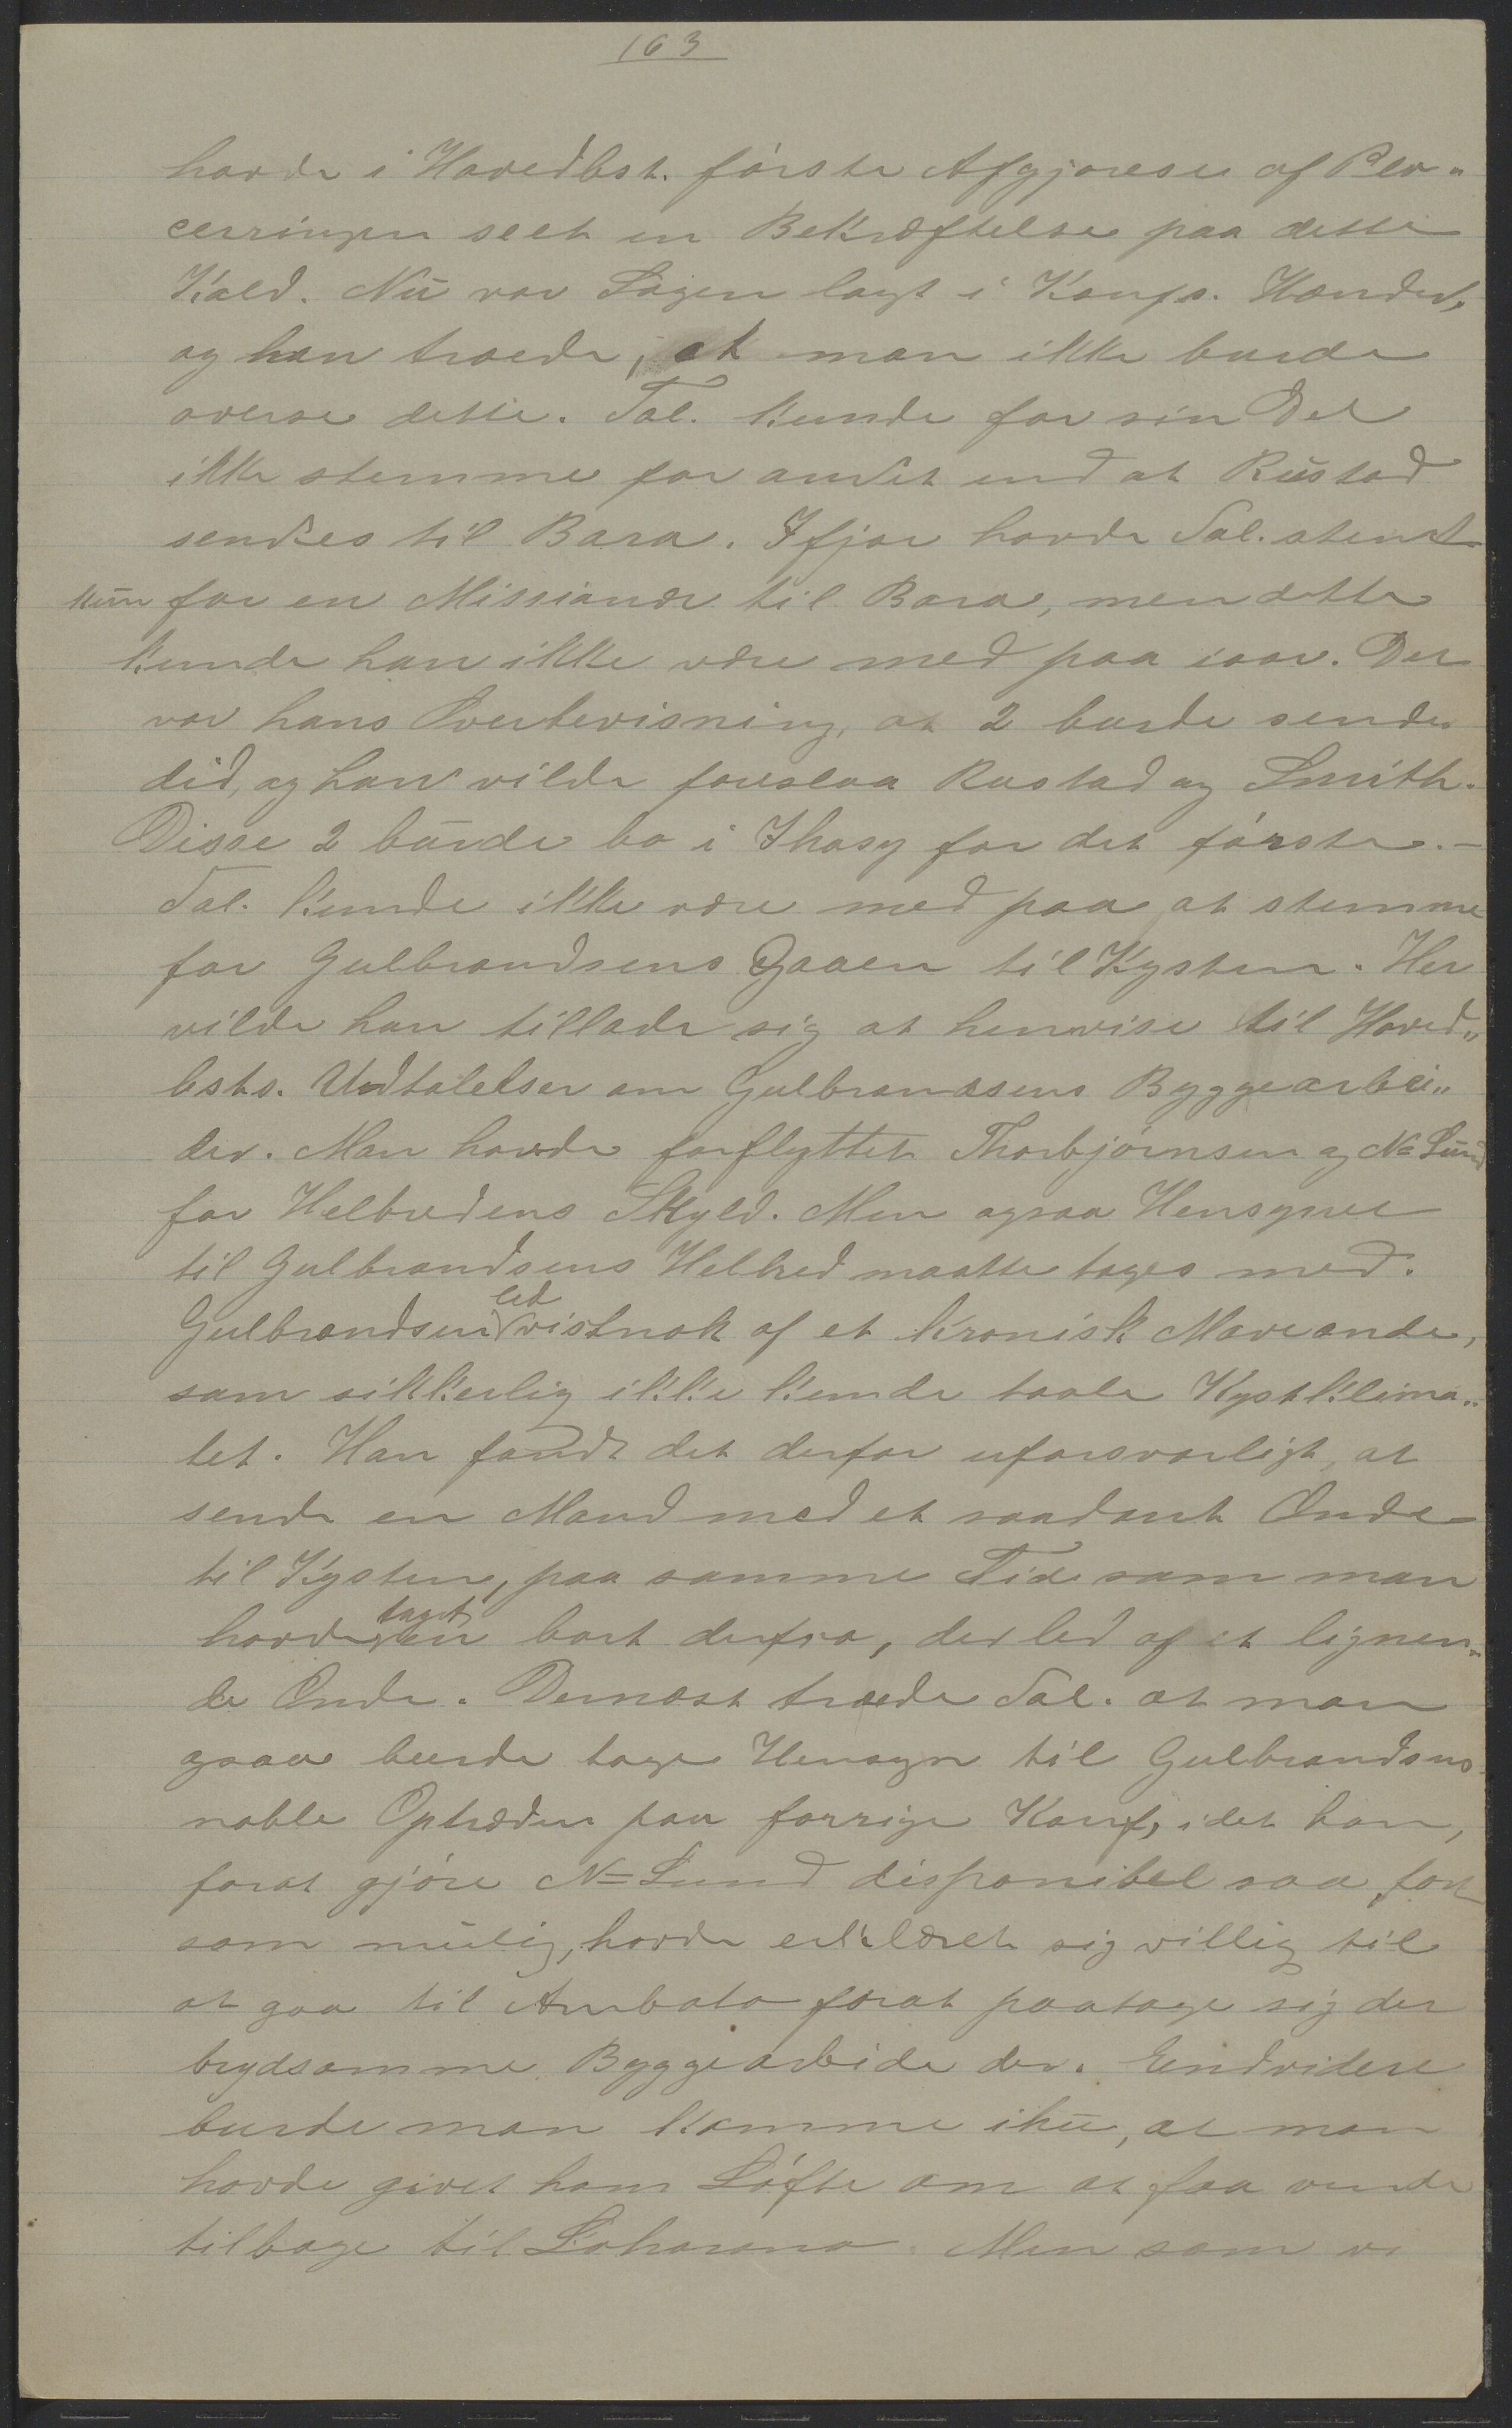 163
havde i Hovedbst. første Afgjørelse af Pla-
ceringen seet en Bekræftelse paa dette
Kald. Nu var Sagen lagt i Konfs. Hænder,
og han troede, at man ikke burde
overse dette. Tal. kunde for sin Del
ikke stemme for andet end at Rustad
sendtes til Bara. Ifjor havde Tal. stemt
kun for en Missionær til Bara, men dette
kunde han ikke være med paa iaar. Det
var hans Overbevisning, at 2 burde sendes
did, og han vilde foreslaa Rustad og Smith.
Disse 2 burde bo i Ihosy for det første. –
Tal. kunde ikke være med paa at stemme
for Gulbrandsens Gaaen til Kysten. Her
vilde han tillade sig at henvise til Hoved„
bsts. Udtalelser om Gulbrandsens Byggearbei„
der. Man havde forflyttet Thorbjørnsen og N= Lund
for Helbredens Skyld. Men ogsaa Hensynet
til Gulbrandsens Helbred maatte tages med.
Gulbrandsen led vistnok af et kronisk Maveonde,
som sikkerlig ikke kunde taale Kystklima„
tet. Han fandt det derfor uforsvarligt, at
sende en Mand med et saadant Onde
til Kysten, paa samme Tid som man
havde taget en bort derfra, der led af et lignen„
de Onde. Dernæst troede Tal. at man
ogsaa burde tage Hensyn til Gulbrandsens
noble Optræden paa forrige Konf, idet han,
forat gjøre N= Lund disponibel saa fort
som mulig, havde erklæret sig villig til
at gaa til Ambato forat paatage sig det
brydsomme Byggearbeide der. Endvidere
burde man komme ihu, at man
havde givet ham Løfte om at faa vende
tilbage til Loharano. Men som vi